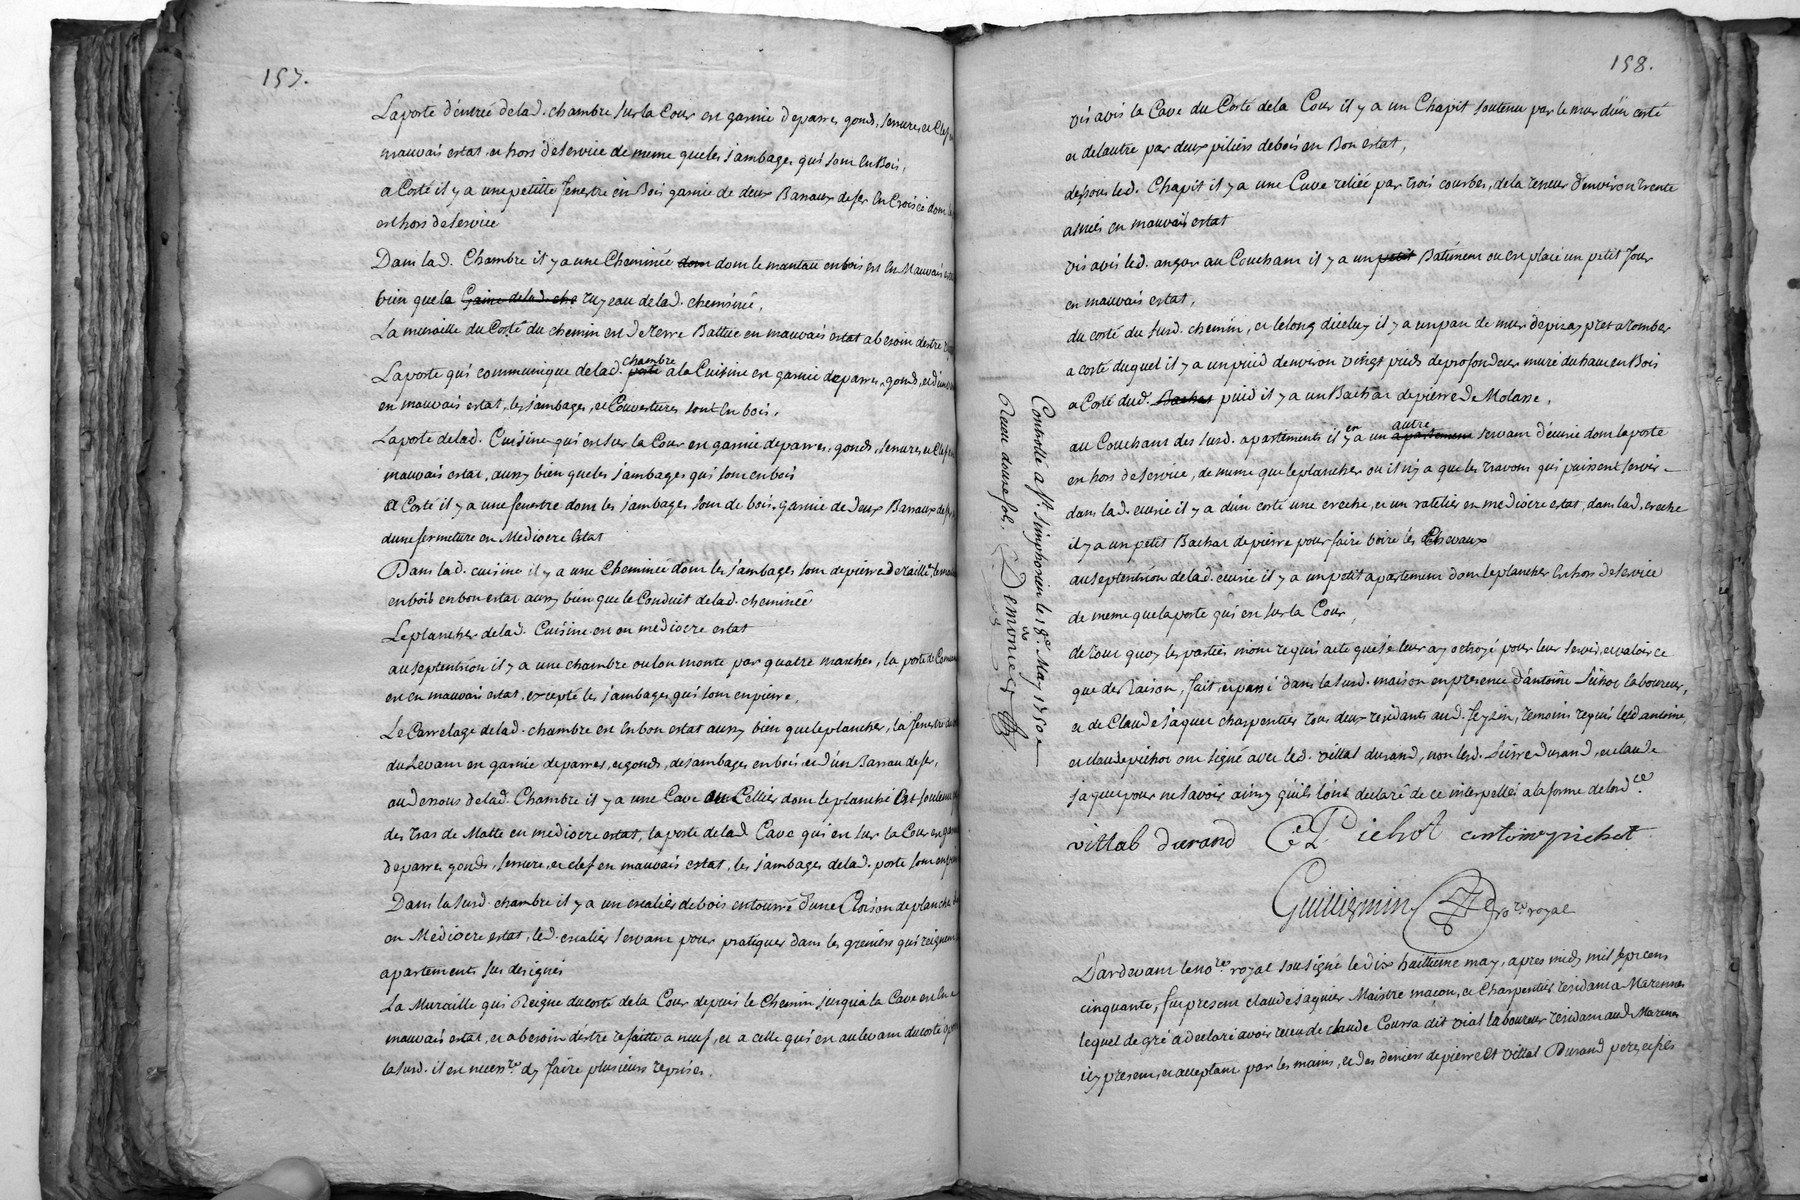 157.
La porte d'entrée de lad. chambre sur la Cour est garnie de parres, gonds, serrures, et Clef en
mauvais estat, et hors de service de meme que les jambages qui sont en Bois,
a Costé il y a une petitte fenestre en Bois garnie de deux Barraux de fer en Croisée dont la
est hors de service
Dans lad. Chambre il y a une Cheminée dont dont le manteau en bois est en Mauvais estat
bien que la Gaine de lad. che tuyeau de lad. cheminée,
La muraille du Costé du chemin est de terre Battue en mauvais estat a besoin d'estre
La porte qui communique de lad. porte chambre a la Cuisine est garnie de parres, gonds, et d'un
en mauvais estat, les jambages, et Couvertures sont en bois,
La porte de lad. Cuisine qui est sur la Cour est garnie de parres, gonds, serrures, et Clef en
mauvais estat, aussy bien que les jambages qui sont en bois
a Costé il y a une fenestre dont les jambages sont de bois, garnie de deux Barraux de fer
dune fermeture en Mediocre Estat
Dans lad. cuisine il y a une Cheminée dont les jambages sont de pierre de taille, le manteau
en bois en bon estat aussy bien que le Conduit de lad. cheminée
Le plancher de lad. Cuisine est en mediocre estat
au septentrion il y a une chambre ou lon monte par quatre marches, la porte de
est en mauvais estat, excepté les jambages qui sont en pierre,
Le Carrelage de lad. chambre est en bon estat aussy bien que le plancher, la fenestre
du Levant est garnie de parres, et gonds, de jambages en bois, et d'un Barrau de fer,
au dessous de lad. Chambre il y a une Cave ou Cellier dont le planché est soutenu
des tras de Matte en mediocre estat, la porte de lad. Cave qui est sur la Cour est garnie
de parres gonds, serrure, et clef en mauvais estat, les jambages de lad. porte sont en pierre
Dans la susd. chambre il y a un escalier de bois entourré d'une Cloison de planches
en Mediocre estat, led. escalier servant pour pratiquer dans les greniers qui reignent
apartements sus designés
La Muraille qui Reigne du costé de la Cour depuis le Chemin, jusqu'a la Cave est en
mauvais estat, et a besoin d'estre refaitte a neuf, et a celle qui est au levant du costé
la susd. il est necess.re d'y faire plusieurs reprises,
158.
vis avis la Cave du Costé de la Cour il y a un Chapit soutenu par le mur d'un costé
et de lautre par deux piliers de bois en Bon estat,
dessous led. Chapit il y a une Cuve reliée par trois courbes, de la teneur d'environ trente
asnées en mauvais estat
vis avis led. angar au Couchant il y a un petit Batiment ou est placé un petit four
en mauvais estat,
du costé du susd. chemin, et le long d'iceluy il y a un pan de mur de pizay pret a tomber
a costé duquel il y a un puid denviron vingt pieds de profondeur muré du haut en Bois
a Costé dud. Bachat puid il y a un Bachat de pierre de Molasse,
au Couchant des susd. apartements il y en a un apartement autre servant d'ecurie dont la porte
est hors de service, de meme que le plancher ou il n'y a que les travons qui puissent servir
dans lad. ecurie il y a d'un costé une creche, et un ratelier en mediocre estat, dans lad. creche
il y a un petit Bachat de pierre pour faire boire les Chevaux
au septentrion de lad. ecurie il y a un petit apartement dont le plancher est hors de service
de meme que la porte qui est sur la Cour,
de tout quoy les parties m'ont requis acte que je leur ay octroyé pour leur servir, et valoir ce
que de Raison, fait, et passé dans la susd. maison en presence d'antoine Pichot laboureur,
et de Claude jaquet charpentier tous deux residants aud. feyzin, temoins requis led. antoine,
et claude pichot ont signé avec led. vittal durand, non led. Pierre durand, et claude
jaquet pour ne savoir ainsy qu'ils l'ont declaré de ce interpellés a la forme de lord.ce
vittab durand C.P. Pichot antoine pichot
Guilliermin no.re royal
Controllé a St. Simphorien le 18e May 1750
Reçu douze sols
Pardevant le no.re royal soussigné le dix huitieme may, apres midy mil sept cent
cinquante, fut present claude jaquier Maistre maçon, et Charpentier residant a Marennes
lequel de gré a declaré avoir receu de claude Coursa dit vial laboureur residant aud. Marennes
icy present, et acceptant par les mains, et des deniers de pierre et vittal Durand pere, et fils